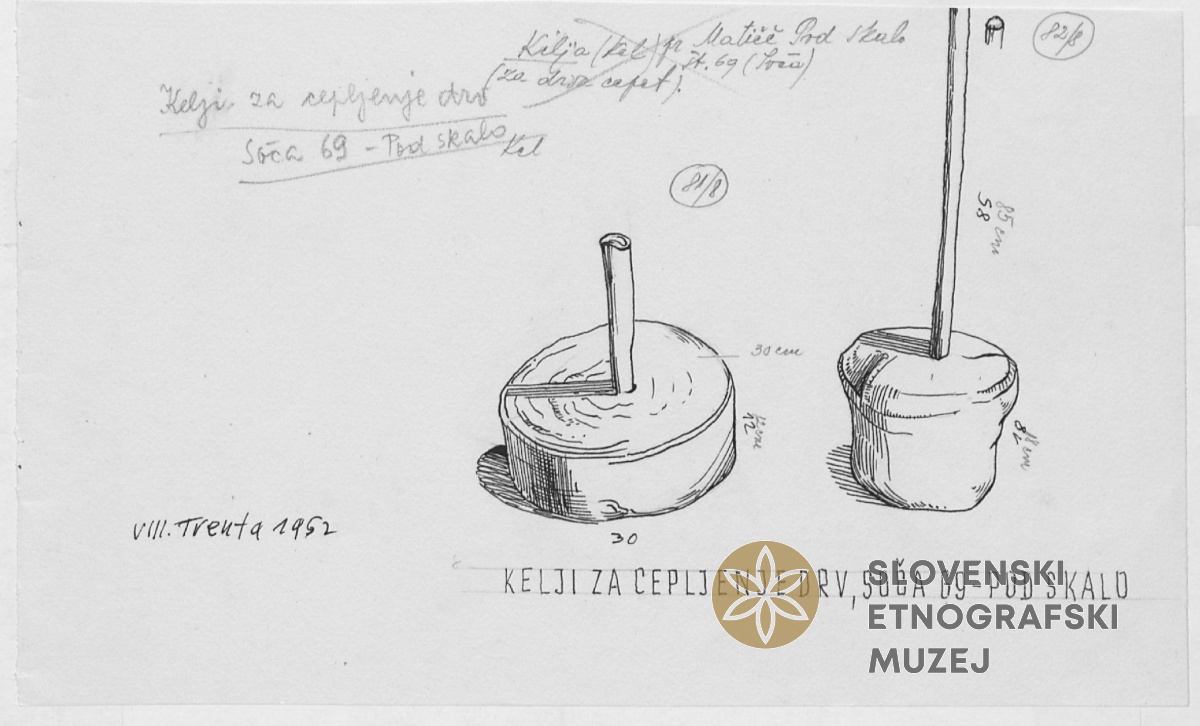 Kilja (kel) pr Matičč Pod skalo
(za drva cepet). št. 69 (Soča)
82/8
Kelji za cepljenje drv
Soča 69 - Pod skalo
Kel
81/8
85 cm
58
30 cm
12
81
VIII. Trenta 1952
30
KELJI ZA CEPLJENJE DRV, SOČA 69 - POD SKALO
SLOVENSKI
ETNOGRAFSKI
MUZEJ